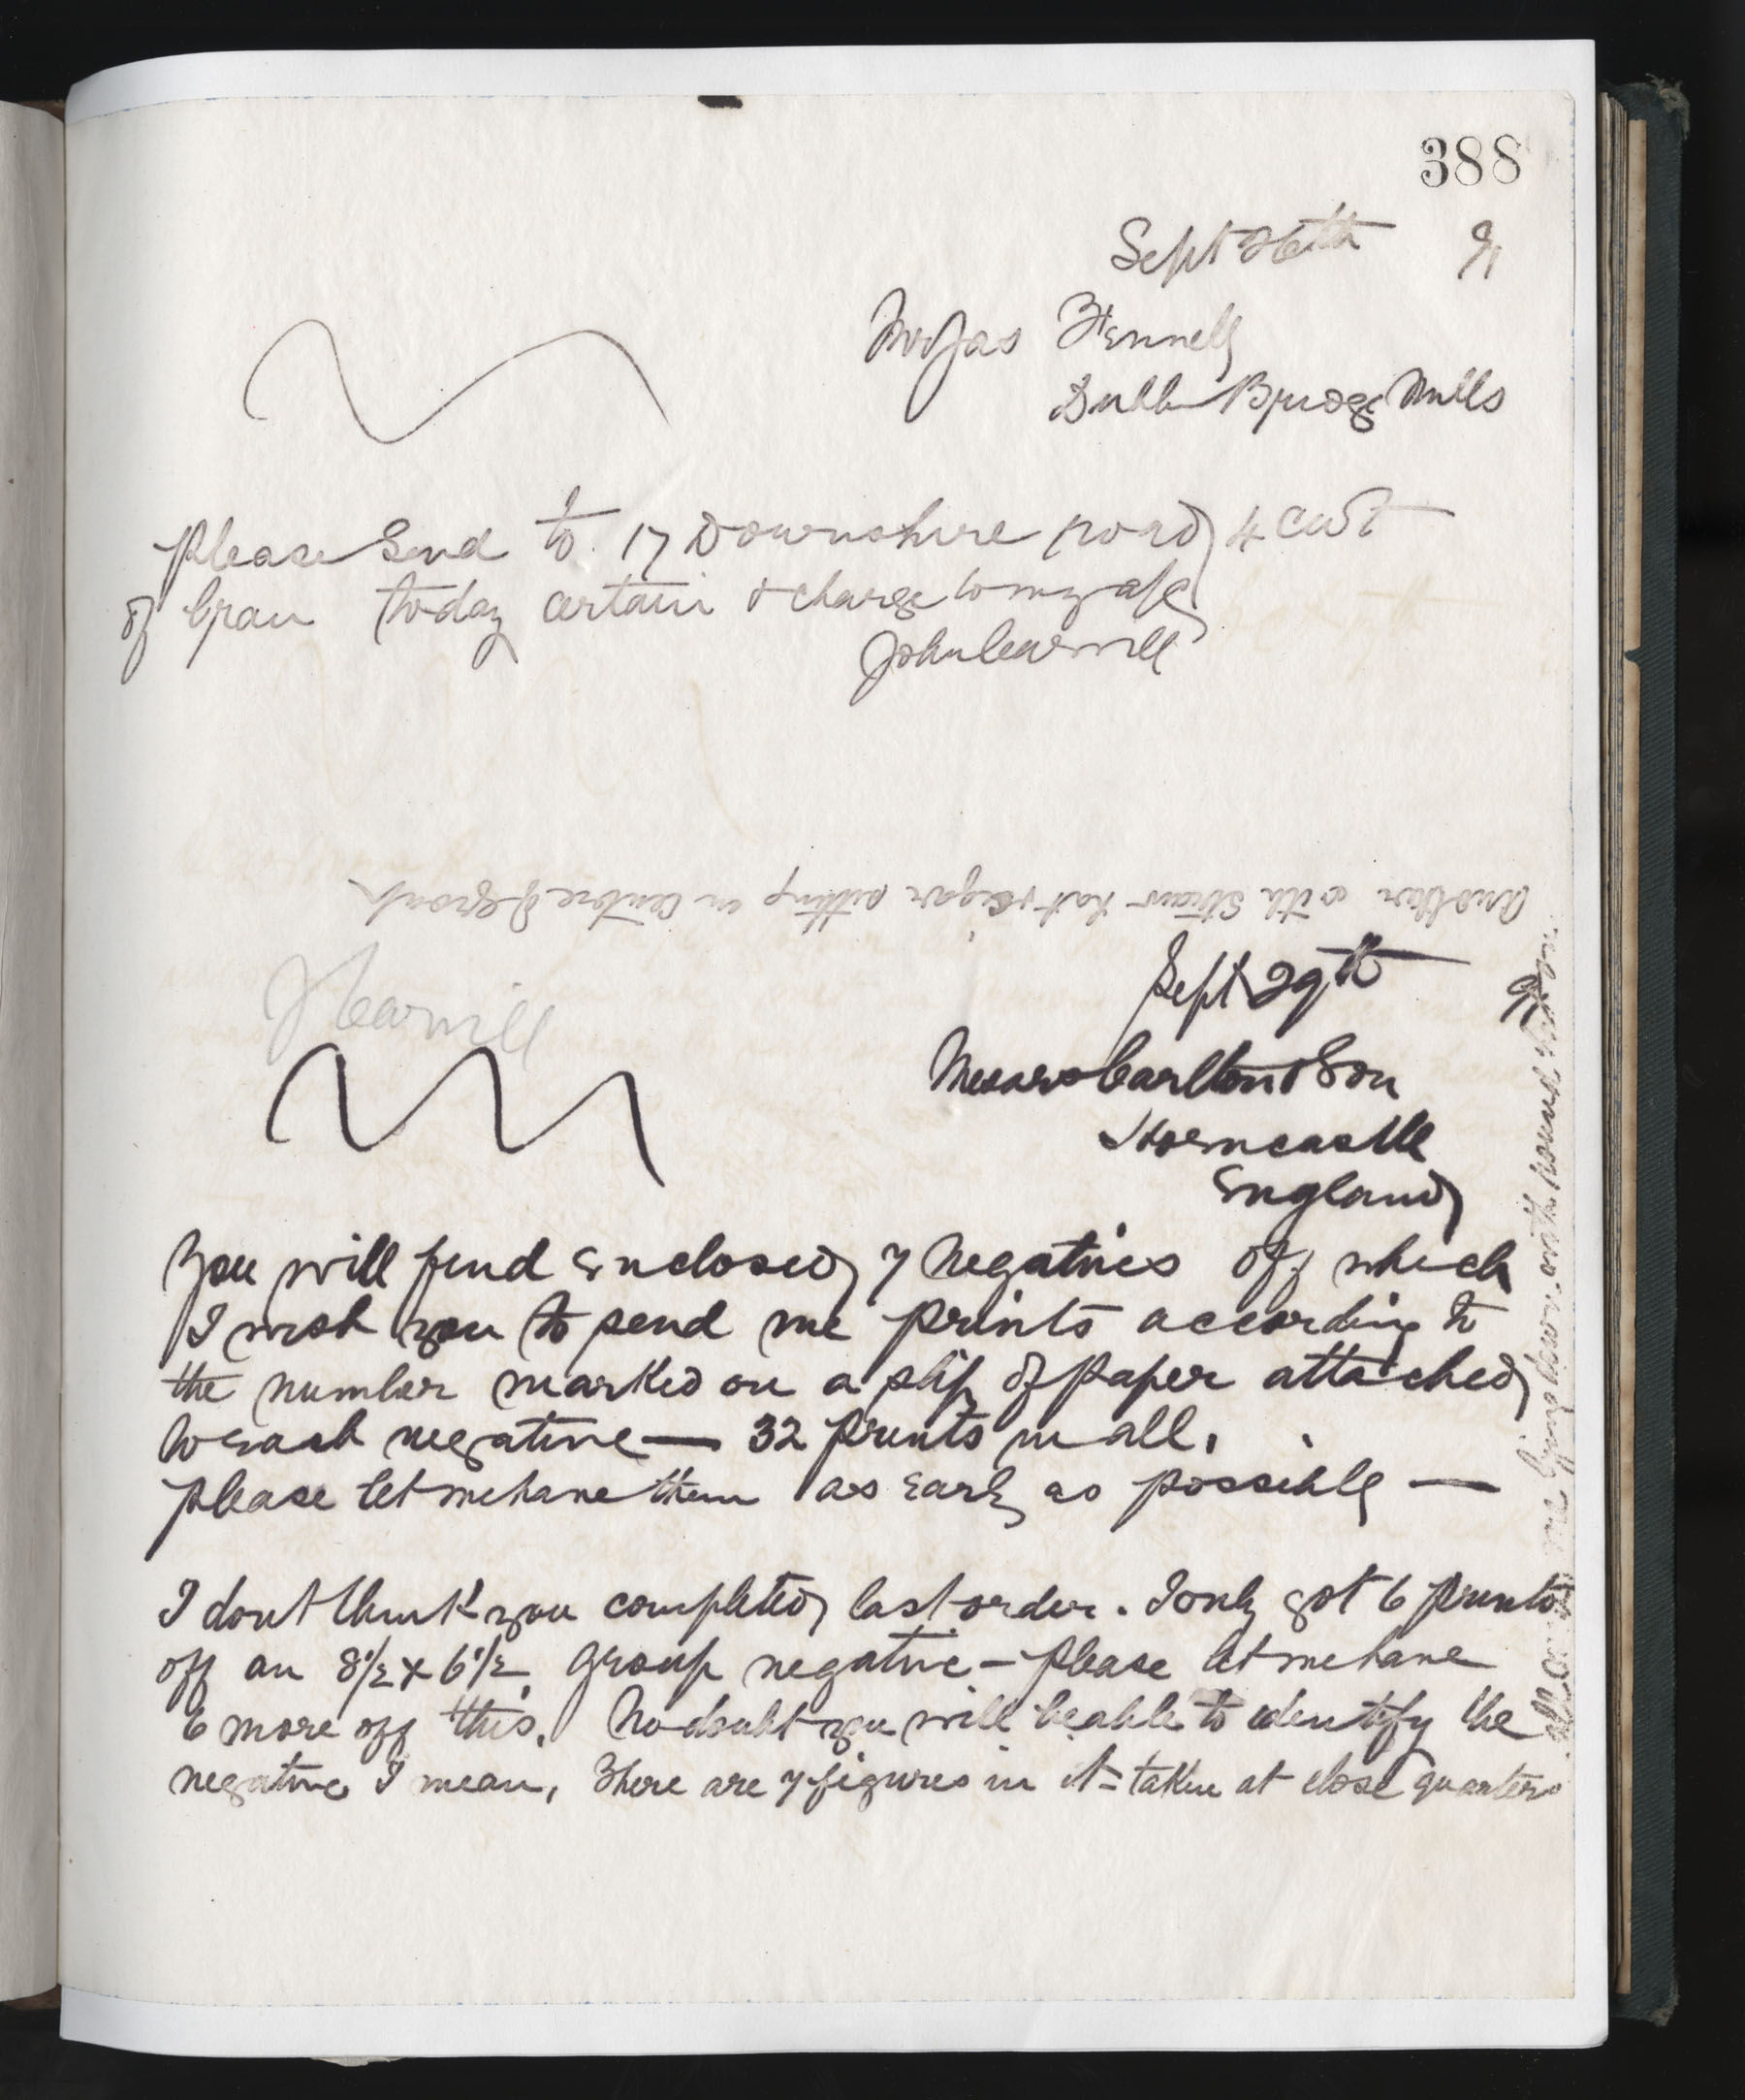 388
Sept 26th 91
Mr Jas Fennell
Dublin Bridge Mills
Please Send to 17 Downshire road 4 cwt
of bran today certain & charge to my a/c
John Carvill
Sept 29th 91
Messrs Carlton & Son
Horncastle
England
You will find enclosed 7 Negatives off which
I wish you to send me prints according to
the number marked on a slip of paper attached
to each negative — 32 prints in all.
please let me have them as early as possible —
I dont think you completed last order. I only got 6 prints
off an 8½ x 6½ group negative - please let me have
6 more off this. No doubt you will be able to identify the
negative I mean, There are 7 figures in it = taken at close quarters
all on one lying down with hound
another with straw hat & cigar sitting in centre of group
J Carvill